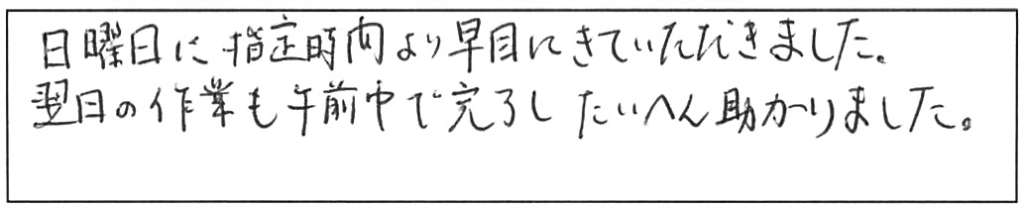 日曜日に指定時間より早目にきていただきました。
翌日の作業も午前中で完了したいへん助かりました。